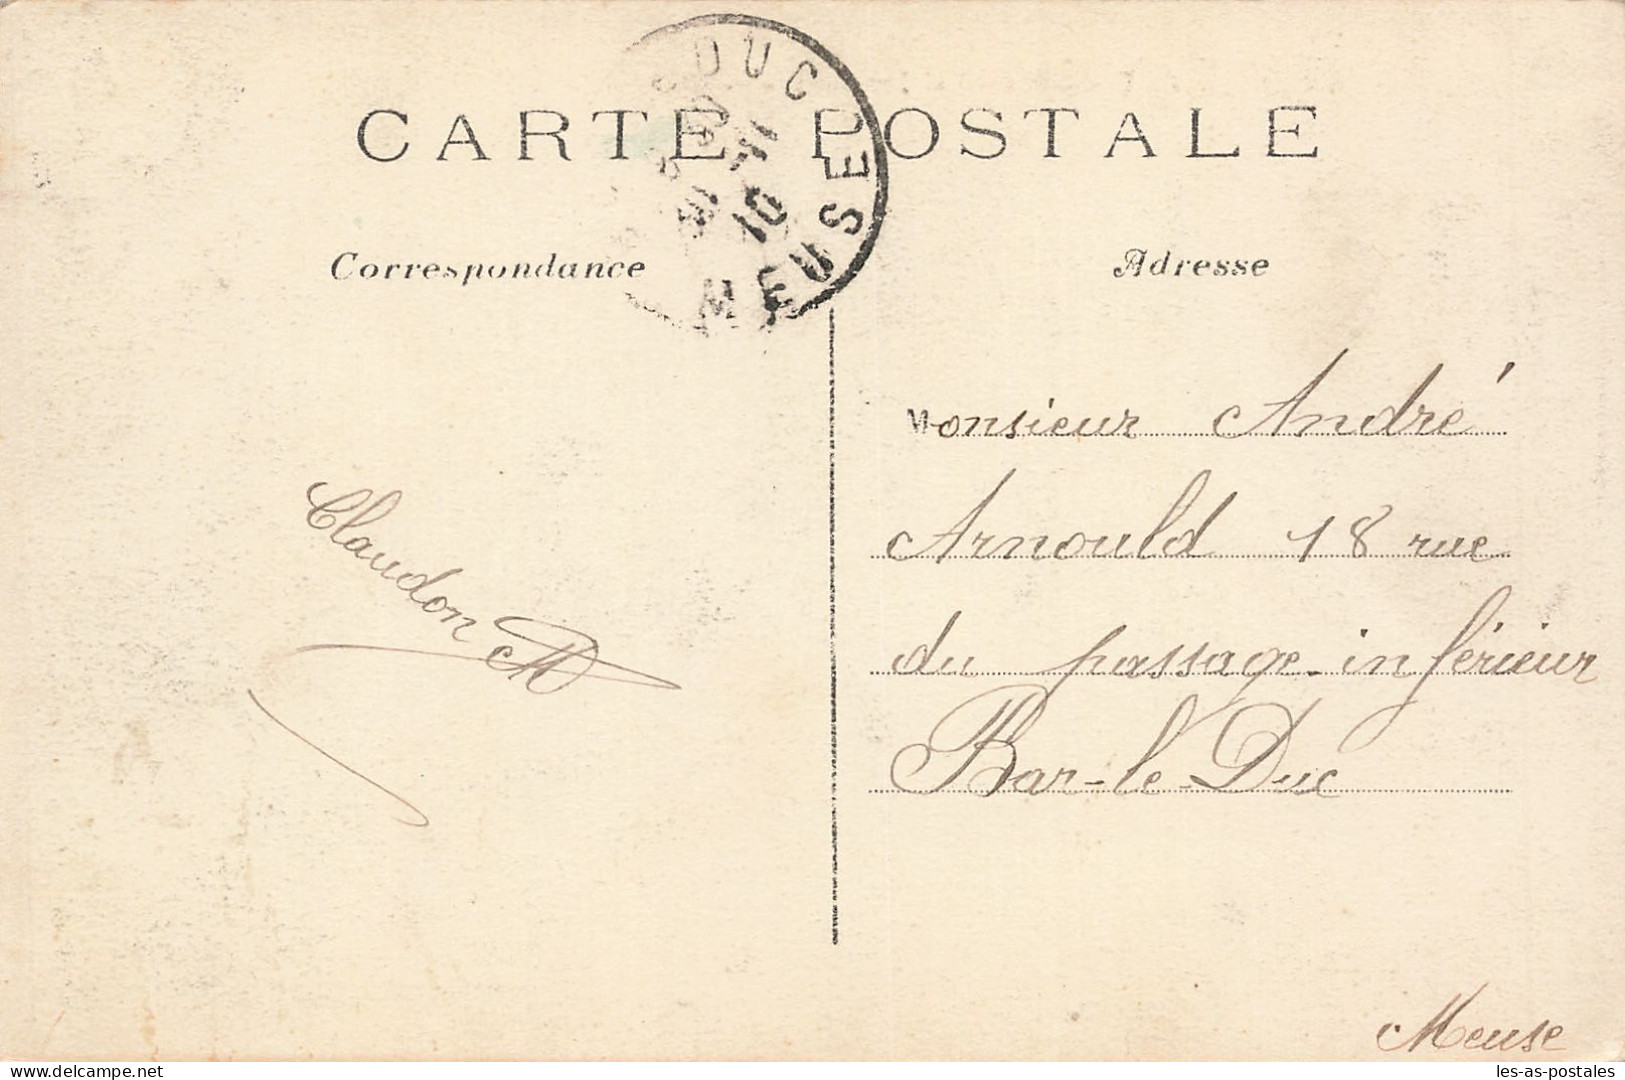 CARTE POSTALE
DUC
11
10
MEUSE
Correspondance
Adresse
Monsieur André
Arnould 18 rue
du passage-inférieur
Bar-le-Duc
Meuse
Claudon
les-as-postales